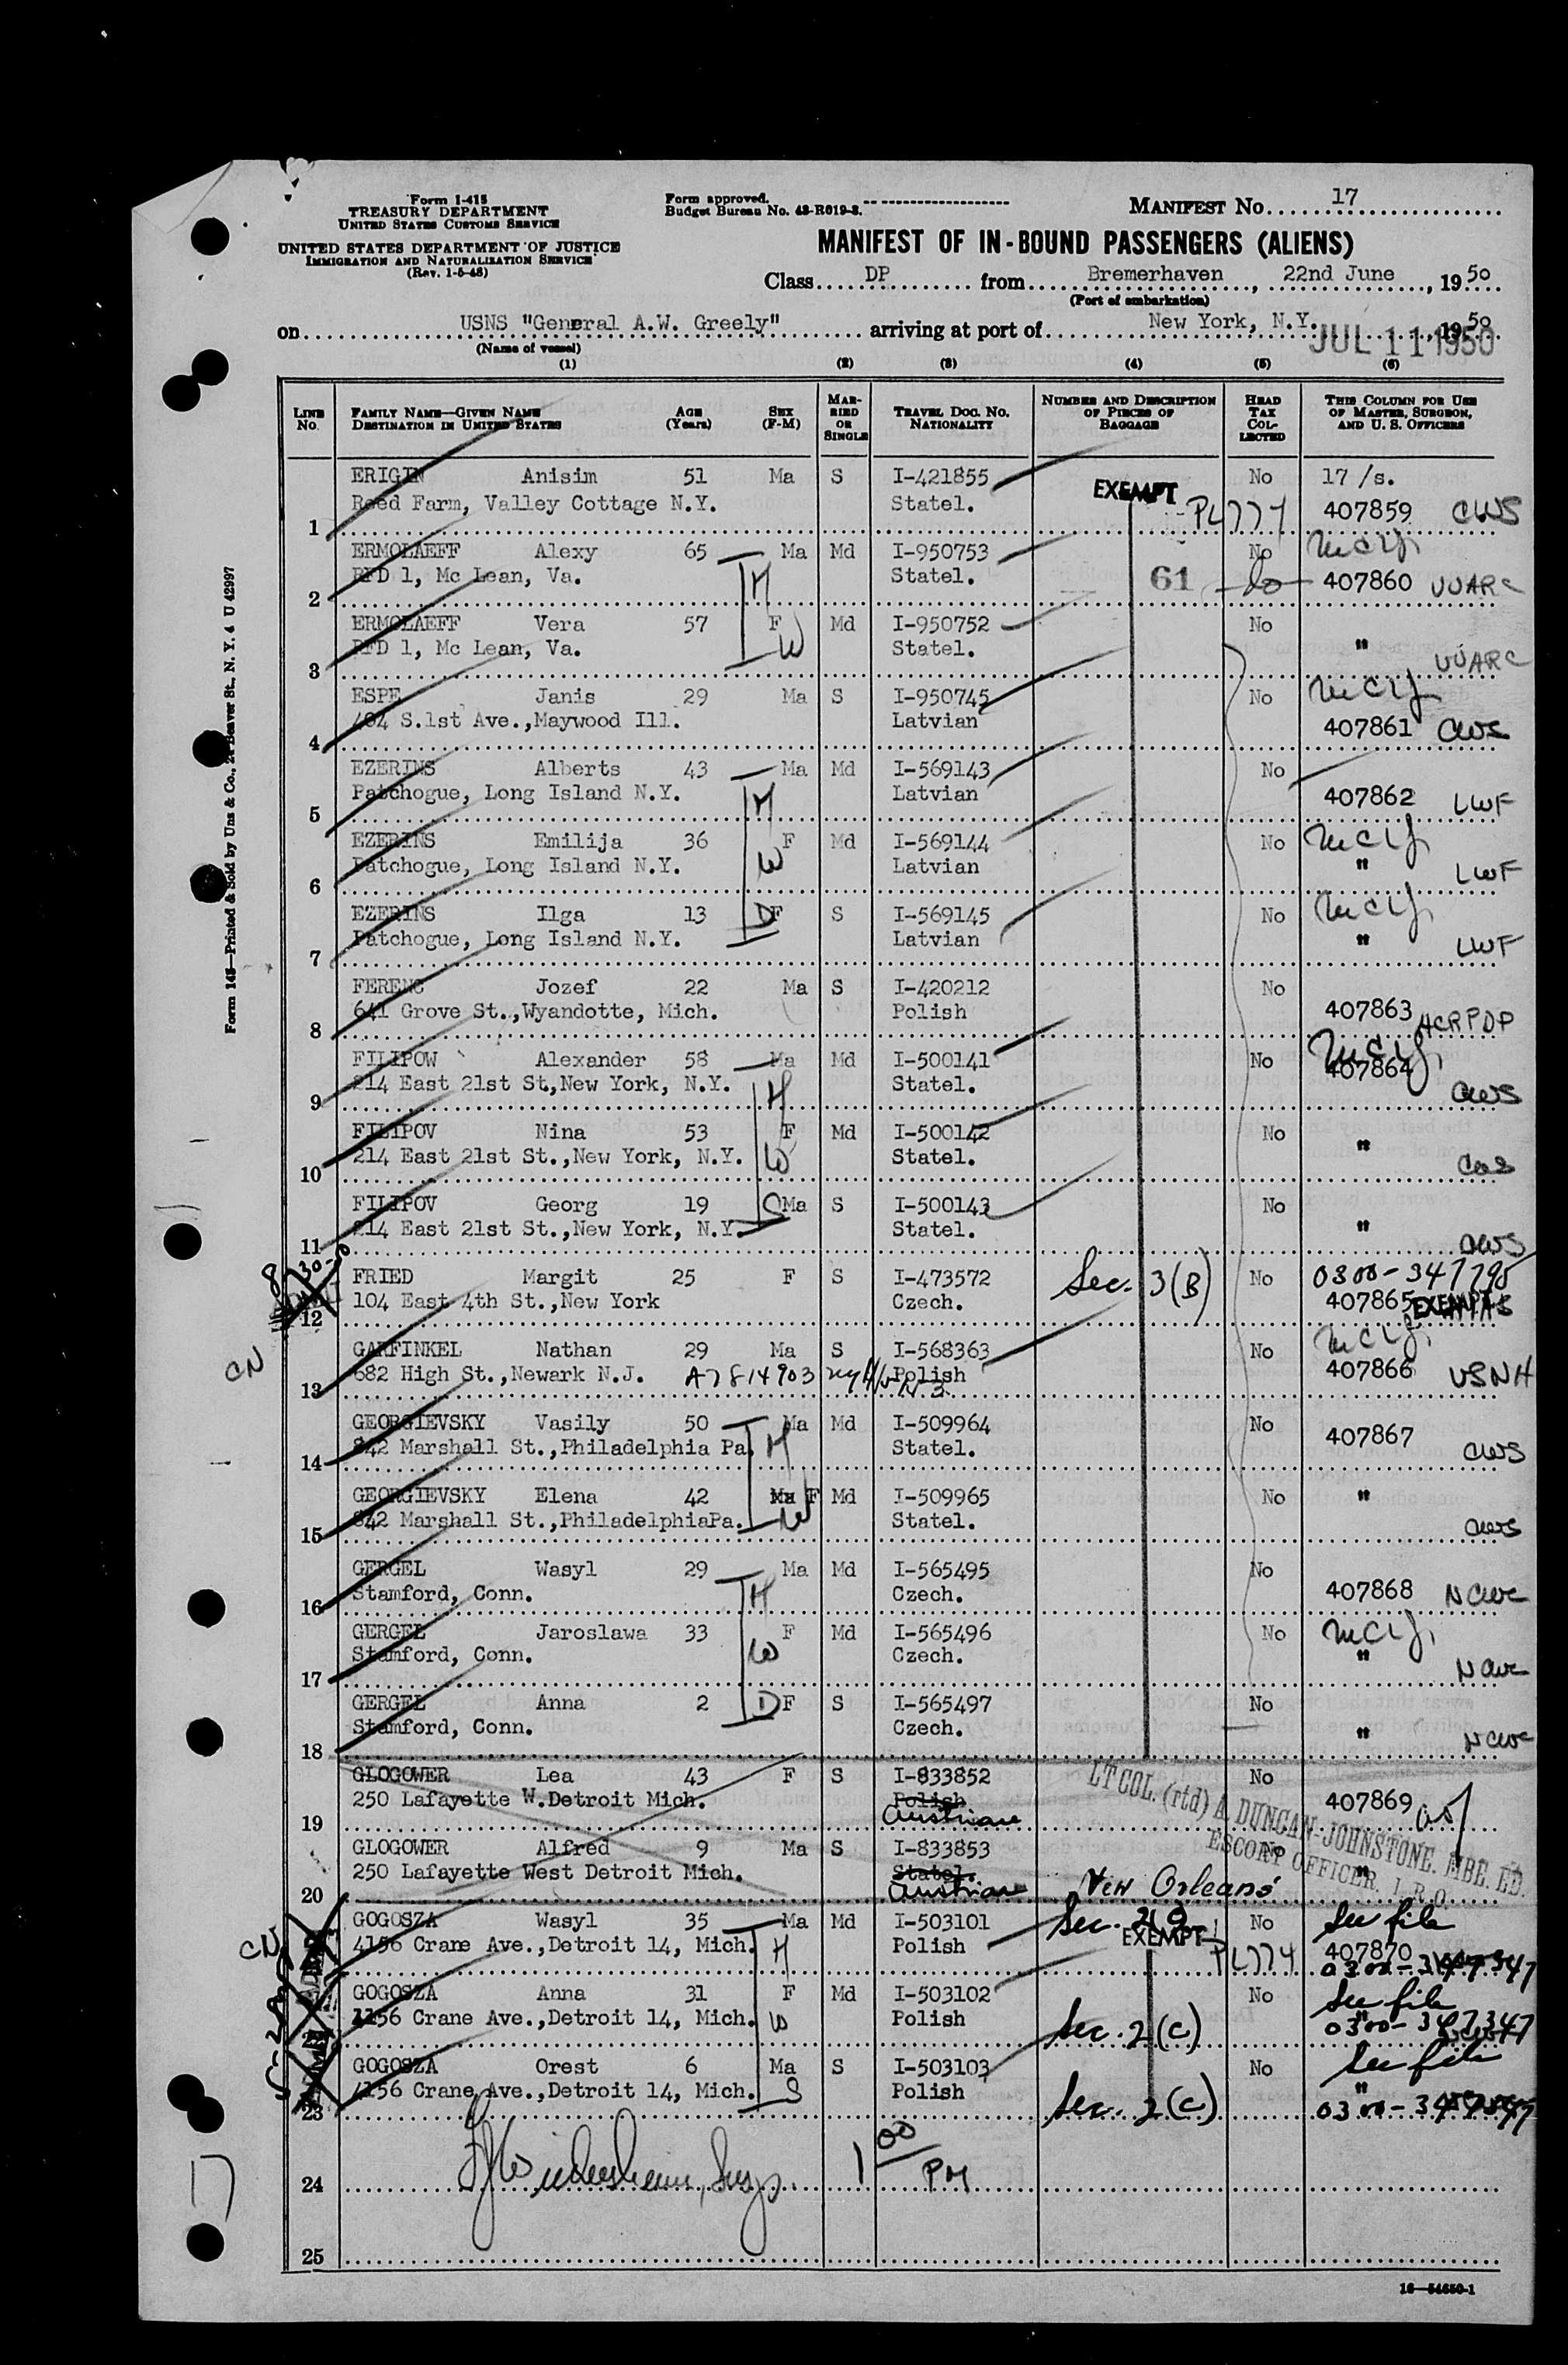 Form I-415
TREASURY DEPARTMENT
UNITED STATES CUSTOMS SERVICE
UNITED STATES DEPARTMENT OF JUSTICE
IMMIGRATION AND NATURALIZATION SERVICE
(Rev. 1-5-48)
Form approved.
Budget Bureau No. 43-R019-3.
MANIFEST NO. 17
MANIFEST OF IN-BOUND PASSENGERS (ALIENS)
Class DP from Bremerhaven, 22nd June, 1950
(Port of embarkation)
on USNS "General A.W. Greely" arriving at port of New York, N.Y. 1950
JUL 11 1950
(Name of vessel)
(1) (2) (3) (4) (5) (6)
LINE NO. FAMILY NAME—GIVEN NAME DESTINATION IN UNITED STATES AGE (Years) SEX (F-M) MARRIED OR SINGLE TRAVEL DOC. NO. NATIONALITY NUMBER AND DESCRIPTION OF PIECES OF BAGGAGE HEAD TAX COLLECTED THIS COLUMN FOR USE OF MASTER, SURGEON, AND U. S. OFFICERS
ERIGIN Anisim 51 Ma S I-421855 No 17/s.
1 Reed Farm, Valley Cottage N.Y. Statel. EXEMPT PL774 407859 CWS
ERMOLAEFF Alexy 65 Ma Md I-950753 No
2 RFD 1, Mc Lean, Va. H Statel. 61 407860 UUARC
ERMOLAEFF Vera 57 F Md I-950752 No
3 RFD 1, Mc Lean, Va. W Statel. " UUARC
ESPE Janis 29 Ma S I-950745 No
4 404 S.1st Ave.,Maywood Ill. Latvian 407861 CWS
EZERINS Alberts 43 Ma Md I-569143 No
5 Patchogue, Long Island N.Y. H Latvian 407862 LWF
EZERINS Emilija 36 F Md I-569144 No
6 Patchogue, Long Island N.Y. W Latvian " LWF
EZERINS Ilga 13 D F S I-569145 No
7 Patchogue, Long Island N.Y. Latvian " LWF
FERENC Jozef 22 Ma S I-420212 No
8 641 Grove St.,Wyandotte, Mich. Polish 407863 ACRPDP
FILIPOW Alexander 58 Ma Md I-500141 No
9 214 East 21st St,New York, N.Y. H Statel. 407864 CWS
FILIPOV Nina 53 F Md I-500142 No
10 214 East 21st St.,New York, N.Y. W Statel. " CWS
FILIPOV Georg 19 S Ma S I-500143 No
11 214 East 21st St.,New York, N.Y. Statel. " CWS
FRIED Margit 25 F S I-473572 Sec. 3(B) No 0300-347795
12 104 East 4th St.,New York Czech. 407865 EXEMPT
GARFINKEL Nathan 29 Ma S I-568363 No
CN
13 682 High St.,Newark N.J. A7814903 Polish 407866 USNH
GEORGIEVSKY Vasily 50 Ma Md I-509964 No
14 842 Marshall St.,Philadelphia Pa. H Statel. 407867 CWS
GEORGIEVSKY Elena 42 Ma F Md I-509965 No "
15 842 Marshall St.,PhiladelphiaPa. W Statel. CWS
GERGEL Wasyl 29 Ma Md I-565495 No
16 Stamford, Conn. H Czech. 407868 NCWC
GERGEL Jaroslawa 33 F Md I-565496 No
17 Stamford, Conn. W Czech. " NCWC
GERGEL Anna 2 D F S I-565497 No
18 Stamford, Conn. Czech. " NCWC
GLOGOWER Lea 43 F S I-833852 No
19 250 Lafayette W.Detroit Mich. Polish Austrian 407869
LT COL. (rtd) A. DUNCAN-JOHNSTONE. MBE. ED.
ESCORT OFFICER, I.R.O.
GLOGOWER Alfred 9 Ma S I-833853 No
20 250 Lafayette West Detroit Mich. Statel. Austrian New Orleans "
GOGOSZA Wasyl 35 Ma Md I-503101 Sec. No See file
CN
4156 Crane Ave.,Detroit 14, Mich. H Polish EXEMPT PL774 407870
GOGOSZA Anna 31 F Md I-503102 No See file
4156 Crane Ave.,Detroit 14, Mich. W Polish Sec. 2(c) " 0300-347347
GOGOSZA Orest 6 Ma S I-503103 No See file
23 4156 Crane Ave.,Detroit 14, Mich. S Polish Sec. 2(c) "
24 1 00 PM
25
16—54650-1
Form 145—Printed & Sold by Unz & Co., 24 Beaver St., N. Y. 4 U 42997
17